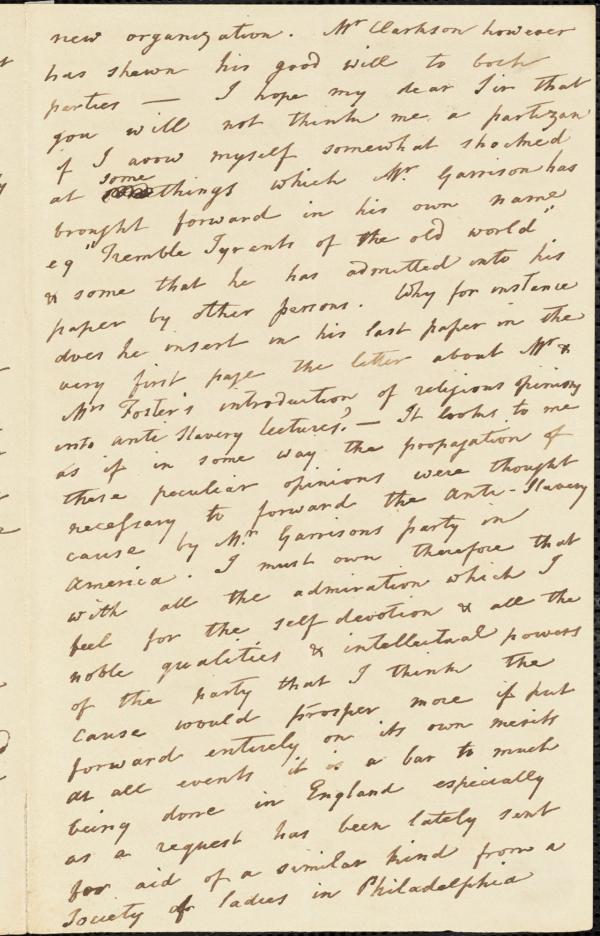 new organization. Mr Clarkson however
has shewn his good will to both
parties — I hope my dear Sir that
you will not think me a partizan
if I avow myself somewhat shocked
at some things which Mr. Garrison has
brought forward in his own name
eg "Tremble Tyrants of the old world"
& some that he has admitted into his
paper by other persons. Why for instance
does he insert in his last paper in the
very first page the letter about Mr &
Mrs Foster's introduction of religious opinions
into anti Slavery lectures? — It looks to me
as if in some way the propagation of
these peculiar opinions were thought
necessary to forward the Anti-Slavery
cause by Mr. Garrisons party in
America. I must own therefore that
with all the admiration which I
feel for the self devotion & all the
noble qualities & intellectual powers
of the party that I think the
cause would prosper more if put
forward entirely on its own merits
at all events it is a bar to much
being done in England especially
as a request has been lately sent
for aid of a similar kind from a
Society of ladies in Philadelphia